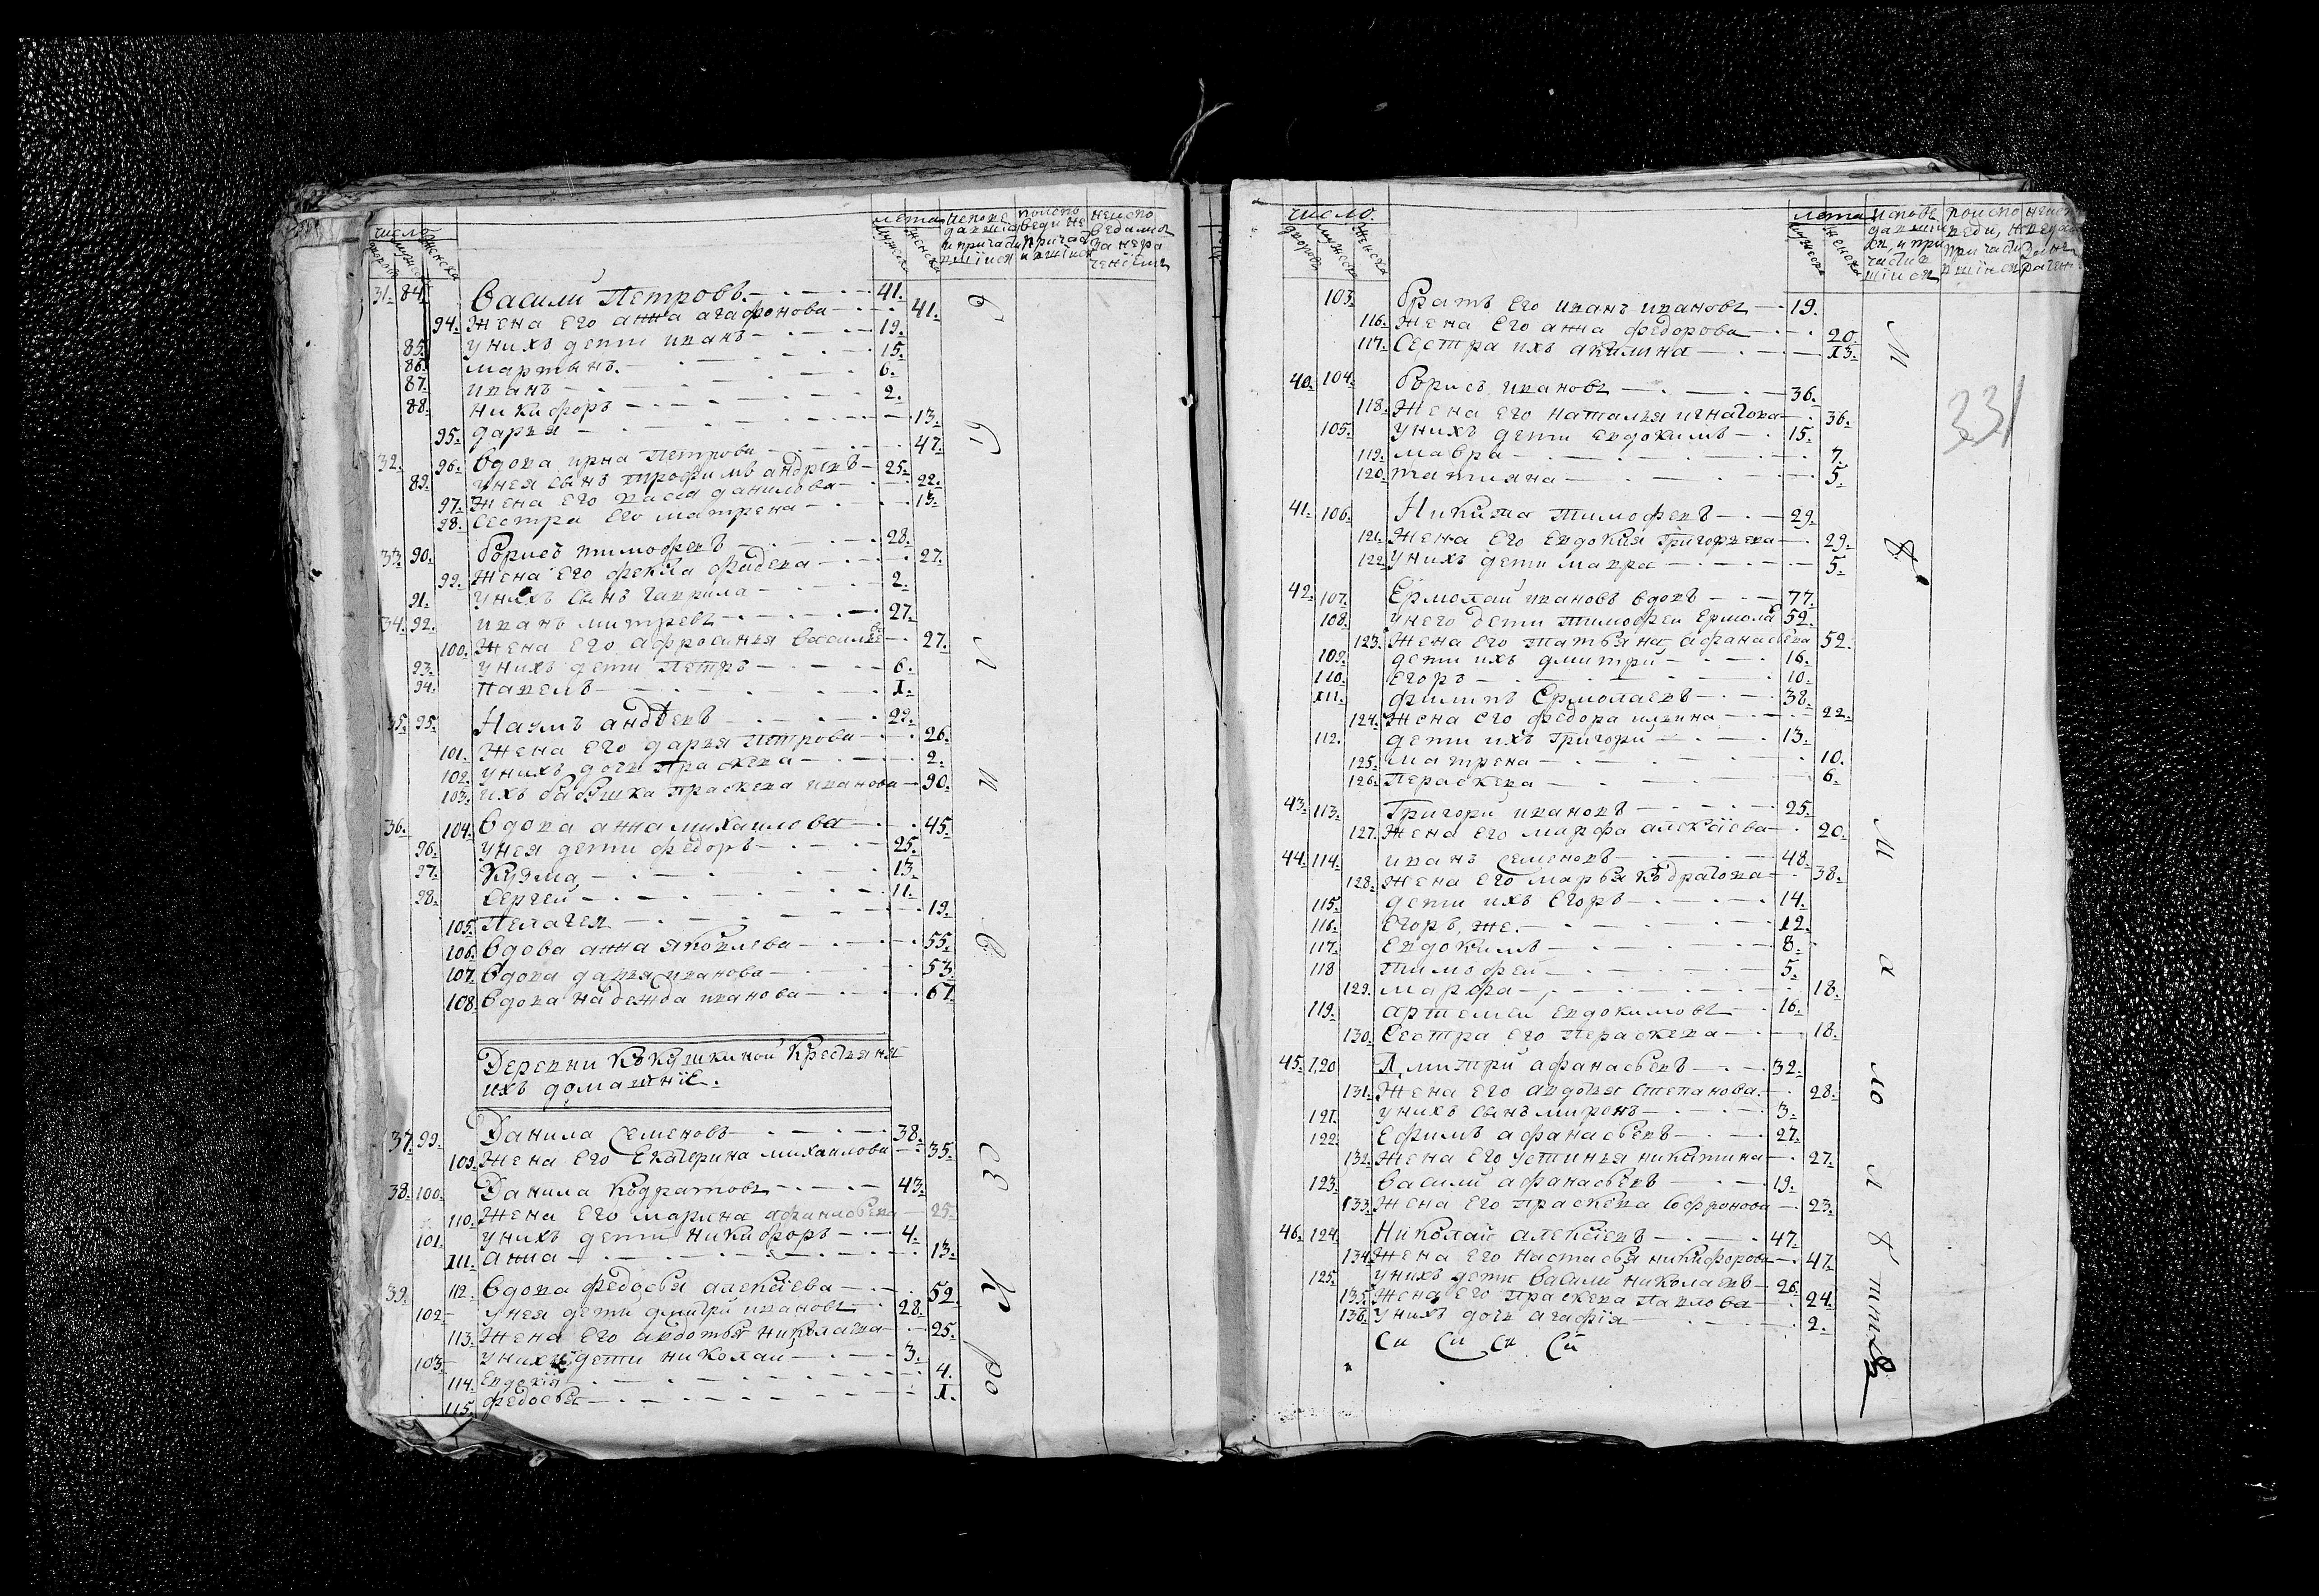 число
дворовъ мужеска женска
лета
мужеска женска
31. 84. Васили Петровъ 41.
94. Жена Его анна агафонова 41.
85. унихъ дети иванъ 19.
86. мартынъ. 15.
87. иванъ 6.
88. никифоръ 2.
95. дарья 13.
32. 96. вдова ирна Петрова 47.
89. унея сынъ трофимъ андревъ 25.
97. Жена Его васса данилова 22.
98. сестра Его матрена 13.
33. 90. Борисъ тимофеевъ 28.
99. Жена Его фекла фадеева 27.
91. унихъ сынъ гаврила 2.
34. 92. иванъ митревъ 27.
100. Жена Его афросинья василье 27.
93. унихъ дети Петръ 6.
94. Павелъ 1.
35. 95. Наумъ андревъ 29.
101. Жена Его дарья Петрова 26.
102. унихъ дочь Праскева 2.
103. ихъ бабушка праскева иванова 90.
36. 104. вдова анна михаилова 45.
96. унея дети федоръ 25.
97. Кузма 13.
98. Сергеи 11.
105. Пелагея 19.
106. вдова анна яковлева 55.
107. вдова дарья иванова 53.
108. вдова надежда иванова 67.
Деревни Кокушкиной Крестьяня
ихъ домашніе.
37. 99. Данила Семеновъ 38.
109. Жена Его Екатерина михаилова 35.
38. 100. Данила Кодратовъ 43.
110. Жена Его марина афанасьева 25.
101. унихъ дети никифоръ 4.
111. анна 13.
39. 112. вдова федосья алексіева 52.
102. унея дети дмитри ивановъ 28.
113. Жена Его авдотья николаева 25.
103. унихъ дети николаи 3.
114. Евдокія 4.
115. федосья 1.
число.
дворовъ мужеска женска
лета
мужеска женска
331
103. Братъ Его иванъ ивановъ 19.
116. Жена Его анна федорова 20.
117. Сестра ихъ акилина 13.
40. 104. Борисъ ивановъ 36.
118. Жена Его наталья игнатова 36.
105. унихъ дети Евдокимъ 15.
119. мавра 7.
120. татияна 5.
41. 106. Никита тимофевъ 29.
121. Жена Его Евдокия Григорьева 29.
122. унихъ дети мавра 5.
42. 107. Ермолаи ивановъ вдовъ 77.
108. унего дети тимофеи Ермола 52.
123. Жена Его татьяна афанасьева 52.
109. дети ихъ дмитри 16.
110. Егоръ 10.
111. филипъ Ермолаевъ 38.
124. Жена его федора ильина 22.
112. дети ихъ Григори 13.
125. матрена 10.
126. Пераскева 6.
43. 113. Григори ивановъ 25.
127. Жена Его марфа алексіева 20.
44. 114. иванъ Семеновъ 48.
128. Жена Его марья кодратова 38.
115. дети ихъ Егоръ 14.
116. Егоръ же. 12.
117. Евдокимъ 8.
118 тимофеи 5.
129. марфа 18.
119. артемеи Евдокимовъ 16.
130. Сестра его Пераскева 18.
45. 120 Дмитри афанасьевъ 32.
131. Жена Его авдотья степанова. 28.
121. унихъ сынъ миронъ 3.
122. Ефимъ афанасьевъ 27.
132. Жена Его устинья никитина 27.
123. васили афанасьевъ 19.
133. Жена Его праскева софронова 23.
46. 124. Николаи алексіевъ 47.
134. Жена Его настасья никифорова 47.
125. унихъ дети васили николаевъ 26.
135. Жена Его праскева павлова 24.
136. унихъ дочь агафія 2.